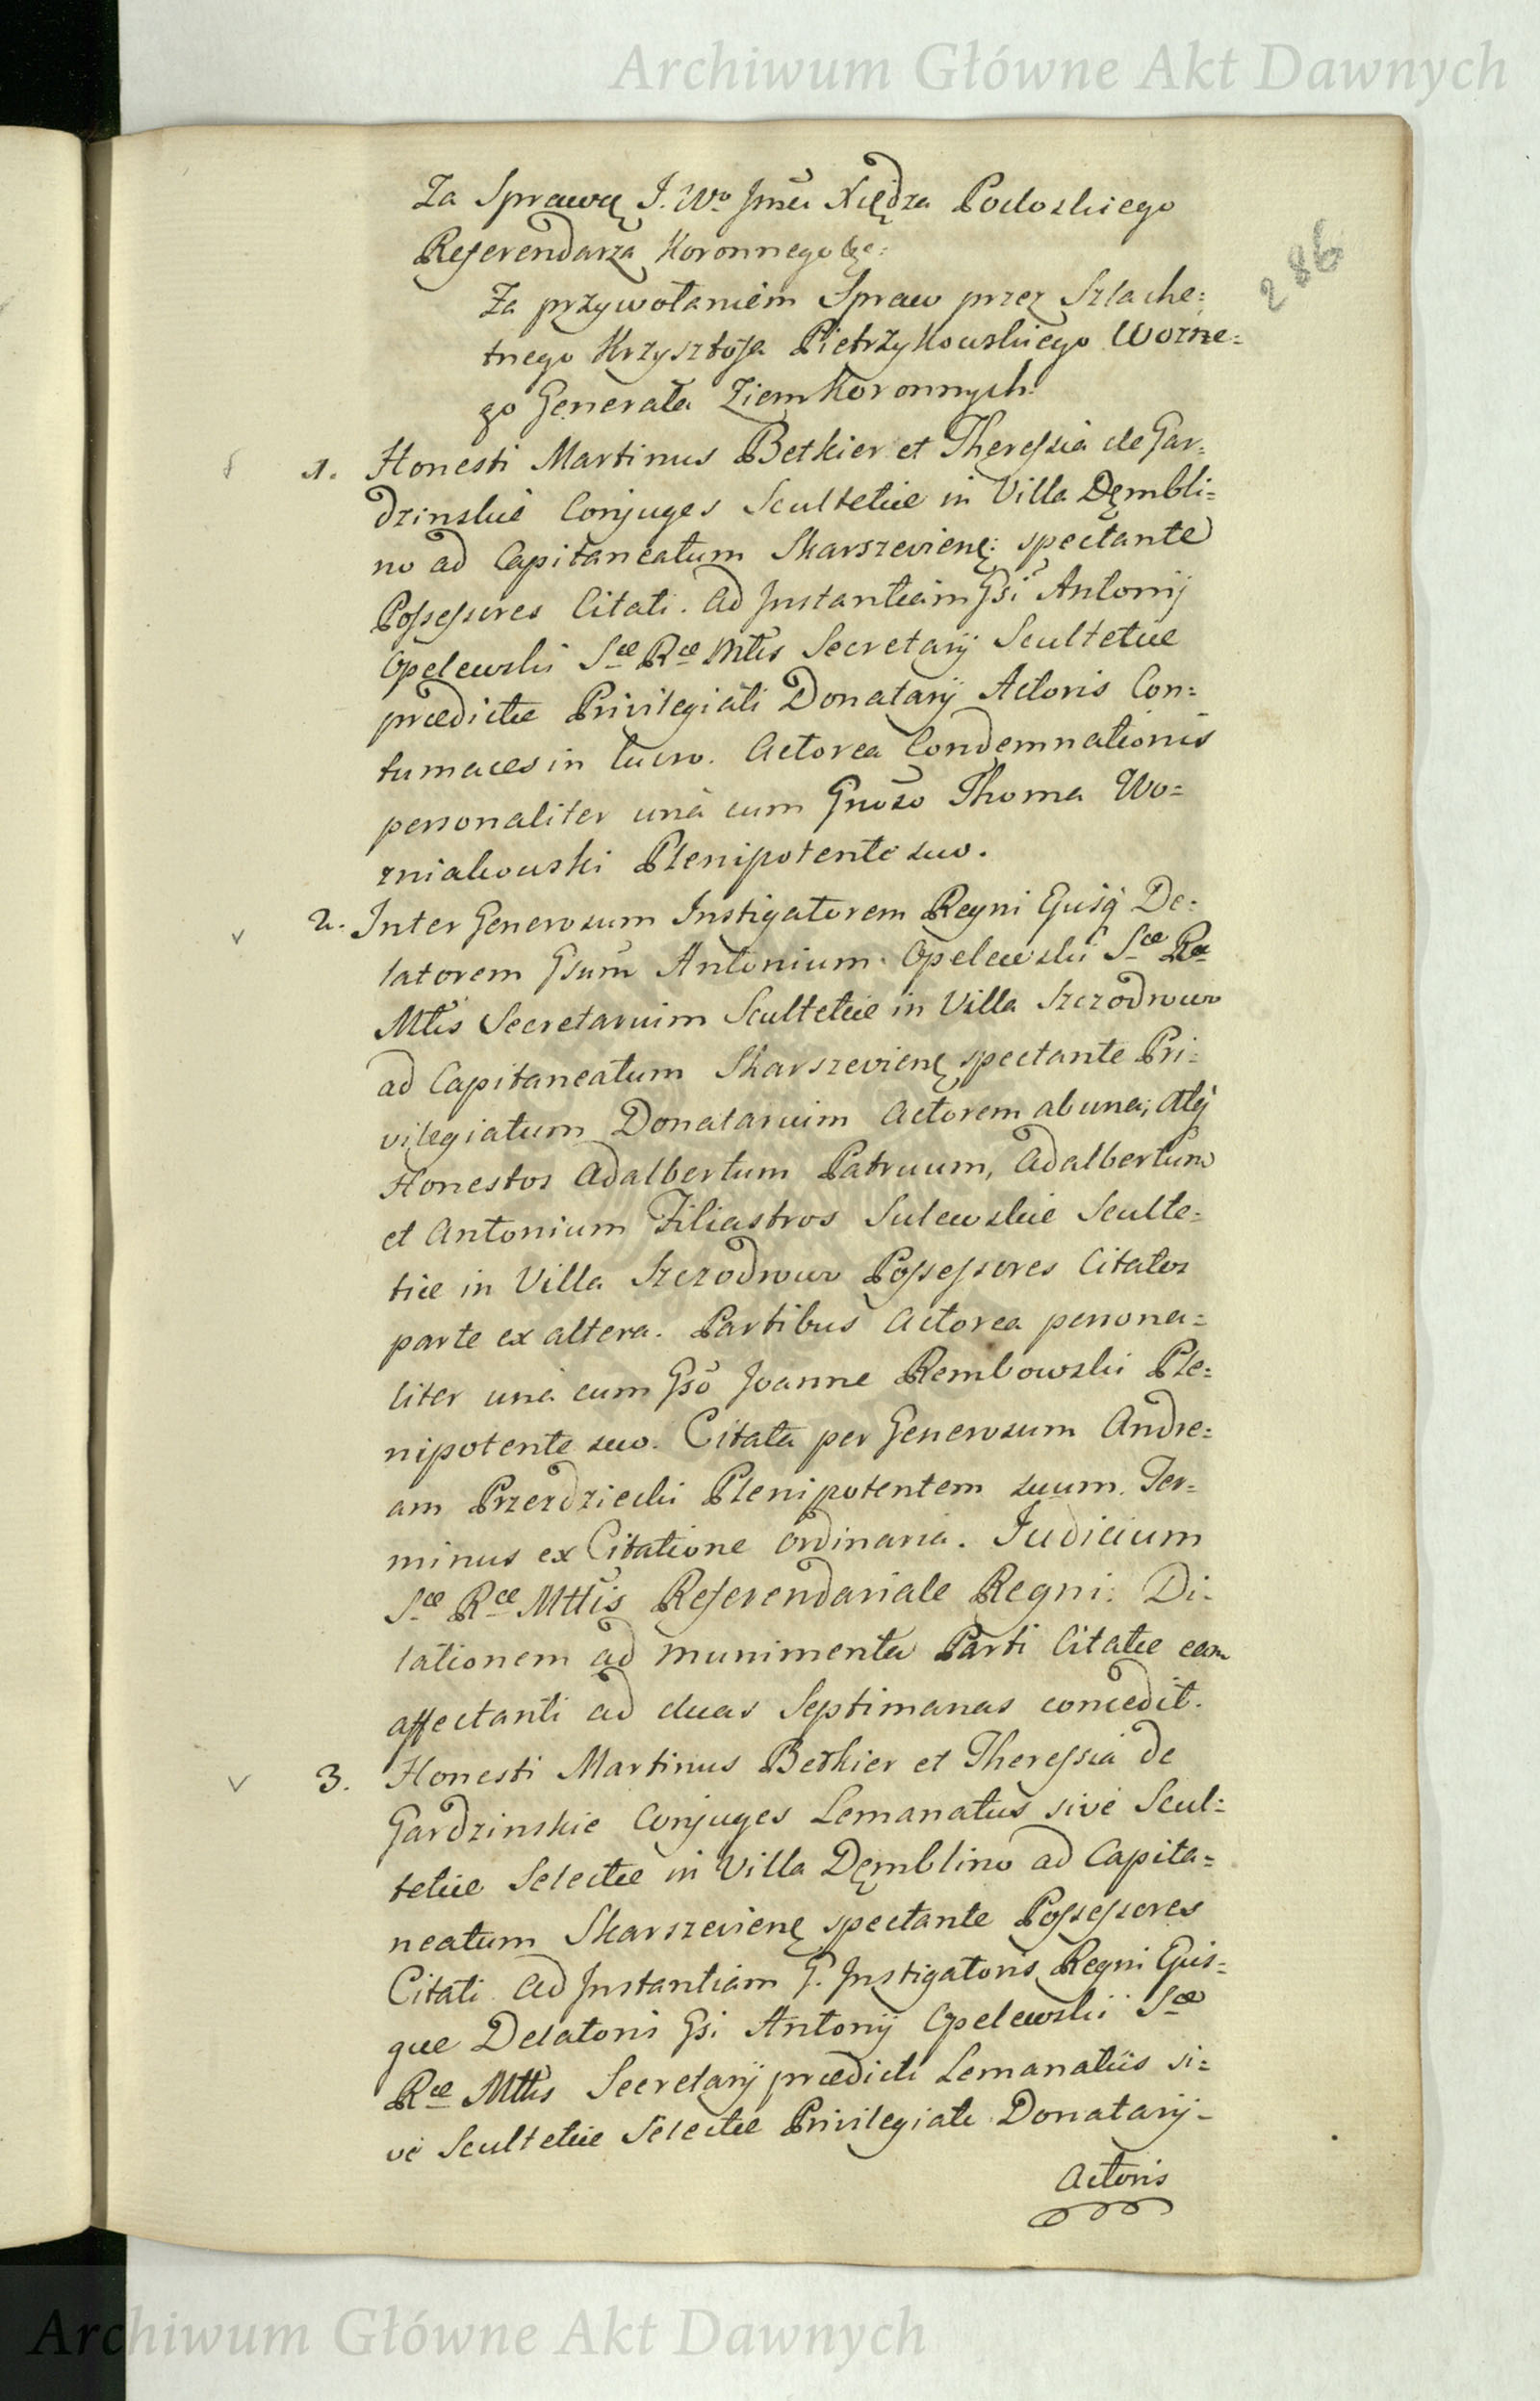 Archiwum Główne Akt Dawnych
Za Sprawą J. Wo Jmci Xiędza Podoskiego
Referendarza Koronnego &c:
286
Za przywołaniem Spraw przez Szlache=
tnego Krzysztofa Pietrzykowskiego Woźne=
go Generała Ziem Koronnych.
1. Honesti Martinus Betkier et Theressia de Gar=
dzinskie Conjuges Scultetiæ in Villa Dęmbli=
no ad Capitaneatum Skarszevienę: spectante
Possessores Citati. Ad Instantiam Gsi Antonij
Opelewski Sæ Ræ Mttis Secretarij Scultetiæ
prædictæ Privilegiati Donatarij Actoris Con=
tumaces in lucro. Actorea Condemnationis
personaliter una cum Gnoso Thoma Wo=
zniakowski Plenipotente suo.
2. Inter Generosum Instigatorem Regni Ejusq De=
latorem Gsum Antonium Opelewski Sæ Ræ
Mttis Secretarium Scultetiæ in Villa Szczodrowo
ad Capitaneatum Skarszevienę spectante Pri=
vilegiatum Donatarium Actorem ab una; Atq
Honestos Adalbertum Patruum, Adalbertum
et Antonium Filiastros Sulewskie Sculte=
tiæ in Villa Szczodrowo Possessores Citatos
parte ex altera. Partibus Actorea persona=
liter una cum Gso Joanne Rembowski Ple=
nipotente suo. Citata per Generosum Andre=
am Przezdziecki Plenipotentem suum. Ter=
minus ex Citatione ordinaria. Judicium
Sæ Ræ Mttis Referendariale Regni: Di=
lationem ad munimenta Parti Citatæ eam
affectanti ad duas Septimanas concedit.
3. Honesti Martinus Betkier et Theressia de
Gardzinskie Conjuges Lemanatus sive Scul=
tetiæ Selectæ in Villa Dęmblino ad Capita=
neatum Skarszevienę spectante Possessores
Citati Ad Instantiam G. Instigatoris Regni Ejus=
que Delatoris Gsi Antonij Opelewskii Sæ
Ræ Mttis Secretarij prædicti Lemanatus si=
ve Scultetiæ Selectæ Privilegiati Donatarij-
Actoris
Archiwum Główne Akt Dawnych